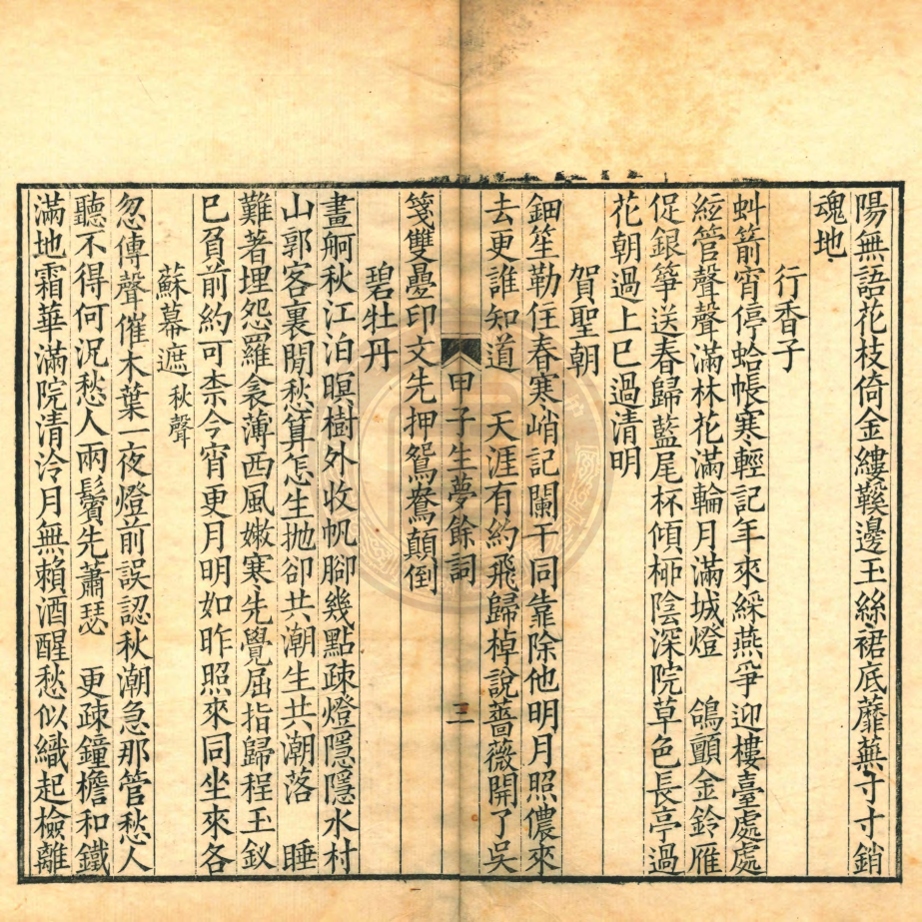 陽無語花枝倚金縷鞵邊玉絲裙底蘼蕪寸寸銷
魂地
行香子
虯箭宵停蛤帳寒輕記年來綵燕爭迎樓臺處處
絃管聲聲滿林花滿輪月滿城燈　鴿顫金鈴雁
促銀箏送春歸藍尾杯傾栁陰深院草色長亭過
花朝過上巳過清明
賀聖朝
鈿笙勒住春寒峭記闌干同靠除他明月照儂來
去更誰知道　天涯有約飛歸棹說薔薇開了吳
甲子生夢餘詞　三
箋雙疊印文先押鴛鴦顛倒
碧牡丹
畫舸秋江泊暝樹外收帆腳幾點疎燈隱隱水村
山郭客裏閒愁算怎生拋卻共潮生共潮落　睡
難著埋怨羅衾薄西風嫩寒先覺屈指歸程玉釵
巳負前約可柰今宵更月明如昨照來同坐來各
蘇幕遮秋聲
忽傳聲催木葉一夜燈前誤認秋潮急那管愁人
聽不得何況愁人兩鬢先蕭瑟　更疎鐘檐和鐵
滿地霜華滿院清泠月無賴酒醒愁似織起檢離